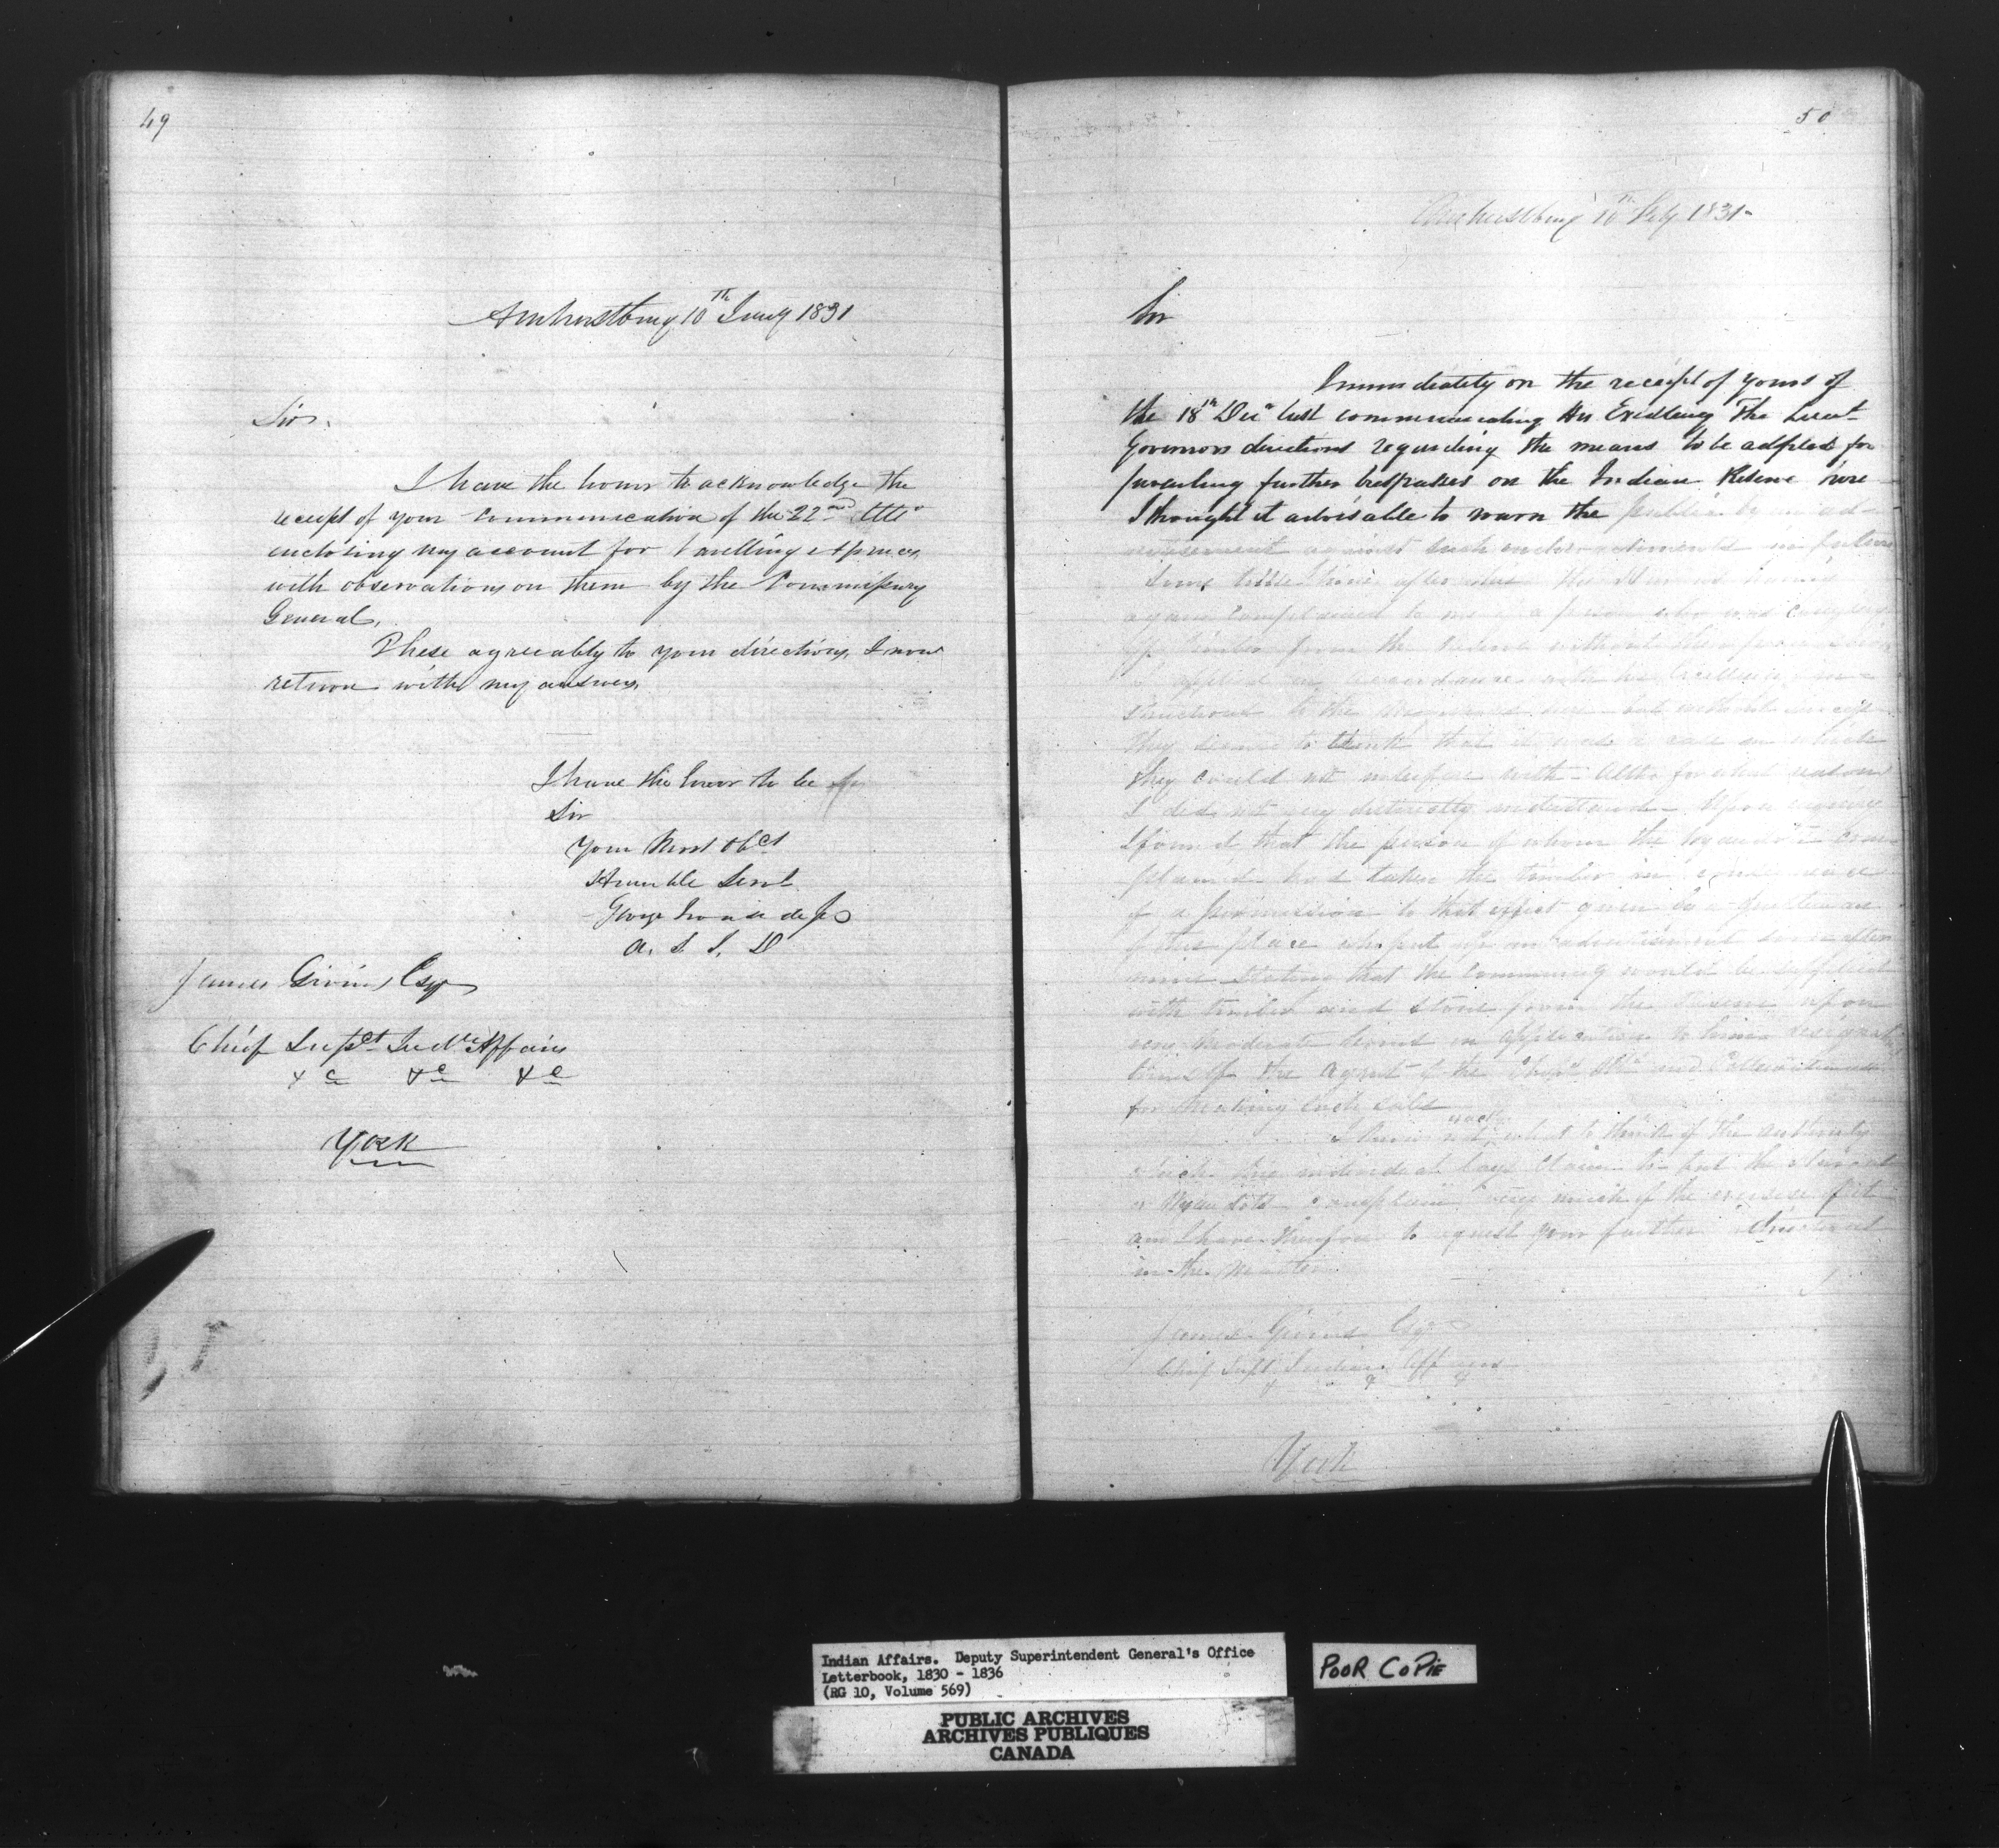 49
Amherstburg 10th Jany 1831
Sir,
I have the honor to acknowledge the
receipt of your communication of the 22nd Ulto
enclosing my account for travelling expences
with observations on them by the Commissary
General,
These agreeably to your directions, I now
return with my answers,
I have the honor to be &c
Sir
Your Most Obet
Humble Servt
George Ironside
A. S. I. D
James Givins Esqr
Chief Supt Indn Affairs
&c &c &c
York
50
Amherstburg 10th Feby 1831
Sir
Immediately on the receipt of yours of
the 18th Decr last communicating His Excellency The Lieut
Governors directions regarding the means to be adopted for
preventing further trespasses on the Indian Reserve here
I thought it advisable to warn the public by an ad-
vertisement against such encroachments in future
Some little time after this the
again complained to me of a person who was carrying
off timber from the Reserve without their permission
I applied in accordance with his Excellency's in-
structions to the but without
they seemed to think that it was a case in which
they could not interfere with - altho for what reason
I did not very distinctly understand - Upon enquiry
I found that the person of whom the com-
plained had taken the timber in
of a permission to that effect given by a gentleman
of this place who put up an advertisement soon after
mine stating that the community would be supplied
with timber and stone from the Reserve upon
very moderate terms on application to him
himself the agent of the and
for making such sale
I know not what to think of the authority
which this individual lays claim to but the
or Wyandotts complain very much of the exercise of it
and I have therefore to request your further directions
in the matter
James Givins Esqr
Chief Supt Indian Affairs
York
Indian Affairs. Deputy Superintendent General's Office
Letterbook, 1830 - 1836
(RG 10, Volume 569)
POOR COPIE
PUBLIC ARCHIVES
ARCHIVES PUBLIQUES
CANADA